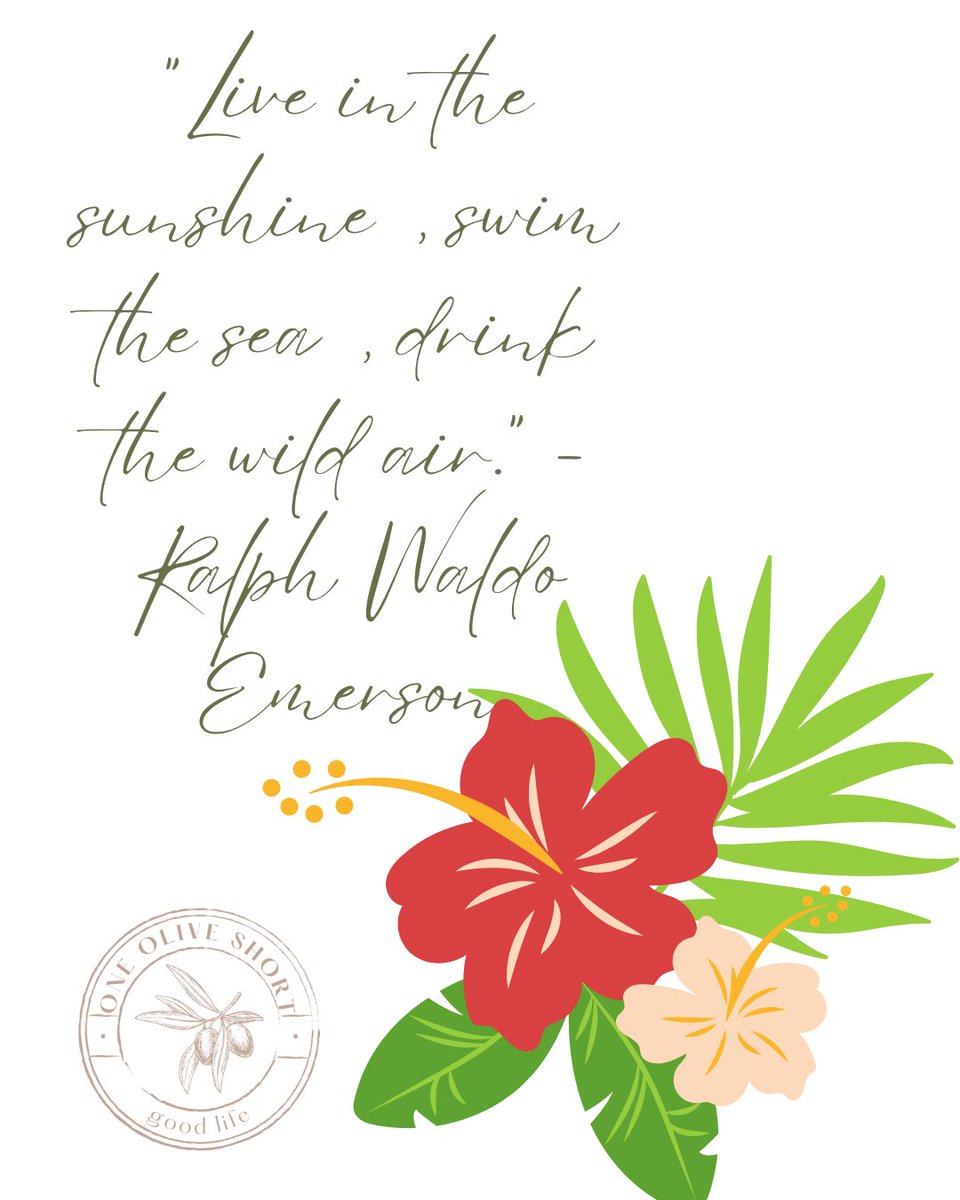 "Live in the
sunshine , swim
the sea , drink
the wild air." -
Ralph Waldo
Emerson
ONE OLIVE SHORT
good life